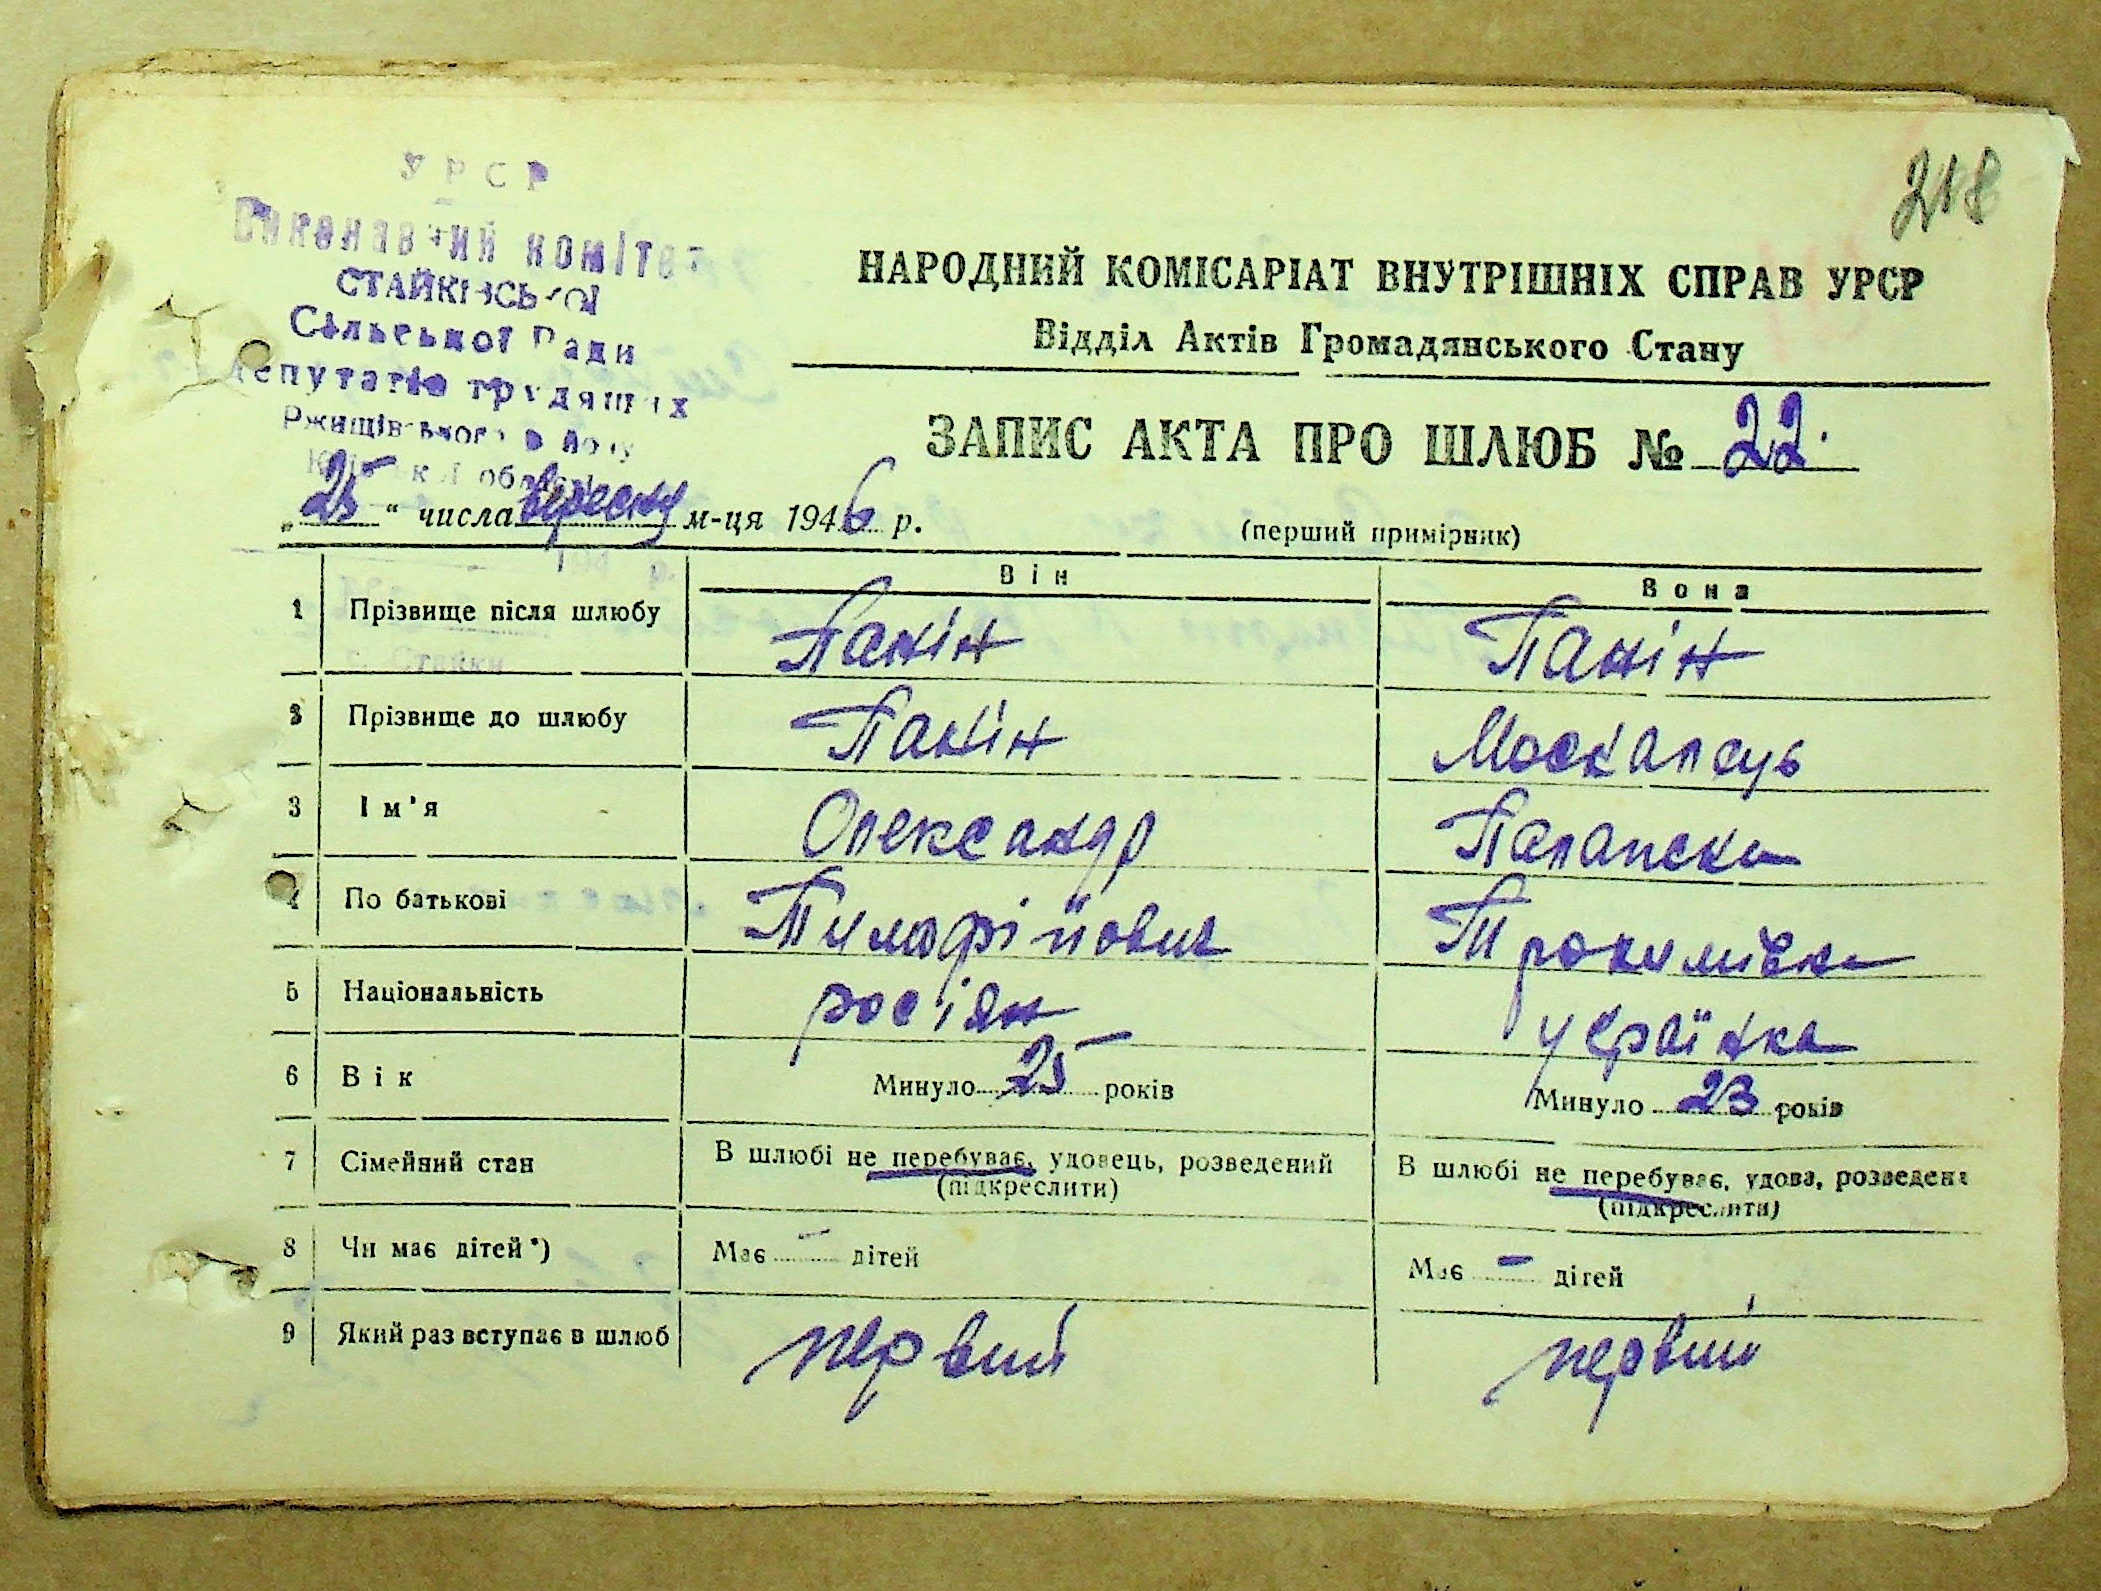 218
УРСР
Виконавчий комітет
СТАЙКІВСЬКОЇ
Сільської Ради
депутатів трудящих
Ржищівського р-ну
Київської області
НАРОДНИЙ КОМІСАРІАТ ВНУТРІШНІХ СПРАВ УРСР
Відділ Актів Громадянського Стану
ЗАПИС АКТА ПРО ШЛЮБ № 22
„25“ числа вересня м-ця 1946 р.
(перший примірник)
Він Вона
1 Прізвище після шлюбу Панін Панін
2 Прізвище до шлюбу Панін Москалець
3 Ім'я Олександр Палашка
4 По батькові Тимофійович Трохимівна
5 Національність росіян українка
6 Вік Минуло 25 років Минуло 23 років
7 Сімейний стан В шлюбі не перебуває, удовець, розведений В шлюбі не перебуває, удова, розведена
(підкреслити) (підкреслити)
8 Чи має дітей*) Має – дітей Має – дітей
9 Який раз вступає в шлюб первий первий
с. Стайки